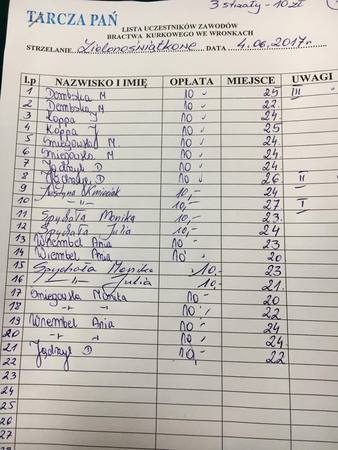 3 strzały - 10 zł
TARCZA PAŃ
LISTA UCZESTNIKÓW ZAWODÓW
BRACTWA KURKOWEGO WE WRONKACH
STRZELANIE Zielonoświątkowe DATA 4.06.2017r.
l.p NAZWISKO I IMIĘ OPŁATA MIEJSCE UWAGI
1 Dembska M 10 25 III
2 Dembska M 10 22
3 Koppa 10 24
4 Koppa J 10 25
5 Śniegowska M. 10 24
6 Śniegowska M 10 24
7 Jądrzyk D 10 24
8 Jądrzyk D 10 26 II
9 Justyna Kmieciak 10,- 24
10 -"- 10,- 27 I
11 Spychała Monika 10,- 23
12 Spychała Julia 10,- 24
13 Wrembel Ania 10 - 23
14 Wrembel Ania 10 20
15 Spychała Monika 10,- 23
16 -"- Julia 10,- 21
17 Śniegowska 10 - 20
18 -"- 10 - 22
19 Wrembel Ania 10 - 24
20 -"- 10 - 24
21 Jądrzyk D 10,- 22
22
23
24
25
26
27
28